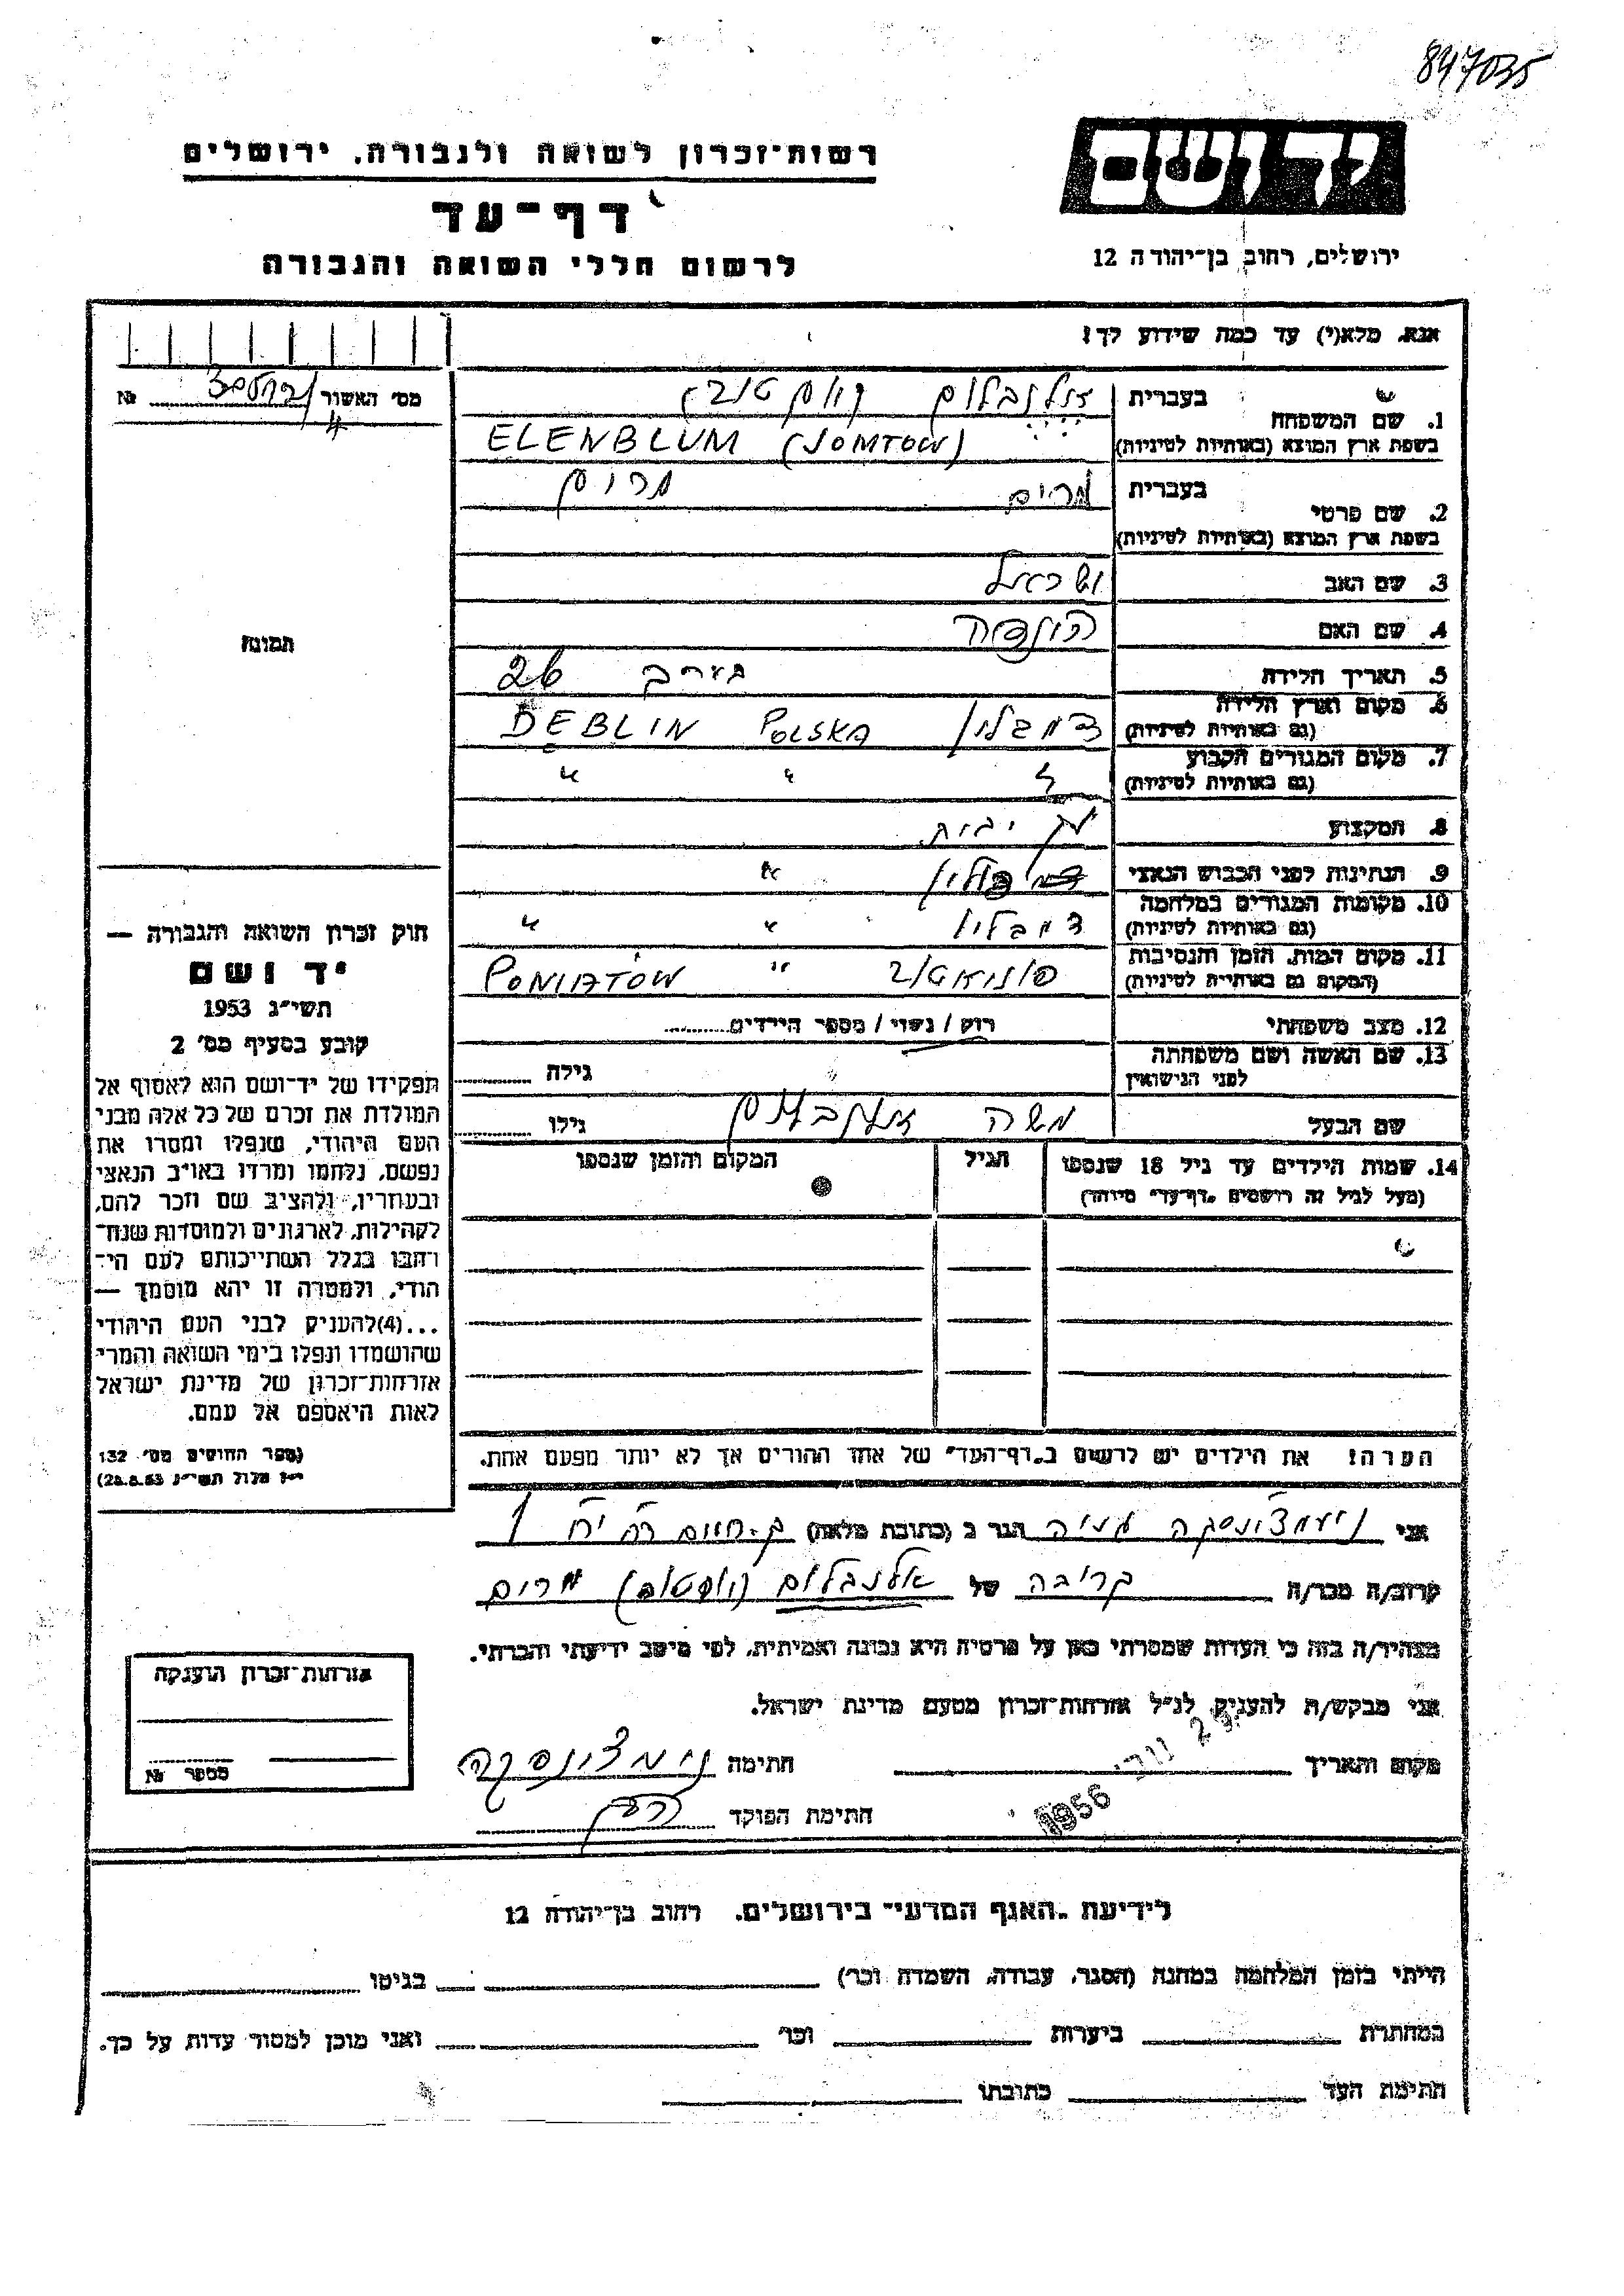 847035
רשות־זכרון לשואה ולגבורה, ירושלים
יד ושם
דף־עד
ירושלים, רחוב בן־יהודה 12
לרשום חללי השואה והגבורה
אנא, מלא(י) עד כמה שידוע לך!
מס' האשור №
1. שם המשפחה
בעברית
בשפת ארץ המוצא (באותיות לטיניות)
ELENBLUM (JOMTOW)
2. שם פרטי
בעברית מרים מרים
בשפת ארץ המוצא (באותיות לטיניות)
3. שם האב ישראל
4. שם האם
תמונה
5. תאריך הלידה בערך 26
6. מקום וארץ הלידה
(גם באותיות לטיניות) דמבלין POLSKA DEBLIN
7. מקום המגורים הקבוע
(גם באותיות לטיניות) " " "
8. המקצוע
9. הנתינות לפני הכבוש הנאצי פולין "
10. מקומות המגורים במלחמה
(גם באותיות לטיניות) דמבלין " "
11. מקום המות, הזמן והנסיבות
(המקום גם באותיות לטיניות) פוניאטוב " PONIATÓW
12. מצב משפחתי רוק / נשוי / מספר הילדים
13. שם האשה ושם משפחתה
לפני הנישואין גילה
שם הבעל משה גילו
14. שמות הילדים עד גיל 18 שנספו
(מעל לגיל זה רושמים "דף־עד" מיוחד)
הגיל
המקום והזמן שנספו
הערה! את הילדים יש לרשום ב"דף־העד" של אחד ההורים אך לא יותר מפעם אחת.
חוק זכרון השואה והגבורה —
יד ושם
תשי"ג 1953
קובע בסעיף מס' 2
תפקידו של יד־ושם הוא לאסוף אל
המולדת את זכרם של כל אלה מבני
העם היהודי, שנפלו ומסרו את
נפשם, נלחמו ומרדו באויב הנאצי
ובעוזריו, ולהציב שם וזכר להם,
לקהילות, לארגונים ולמוסדות שנח־
רבו בגלל השתייכותם לעם הי־
הודי, ולמטרה זו יהא מוסמך —
...(4)להעניק לבני העם היהודי
שהושמדו ונפלו בימי השואה והמרי
אזרחות־זכרון של מדינת ישראל
לאות היאספם אל עמם.
(ספר החוקים מס' 132
י"ז אלול תשי"ג 28.8.53)
אני הגר ב (כתובת מלאה)
קרוב/ה מכר/ה קרובה של אלנבלום (יומטוב) מרים
מצהיר/ה בזה כי העדות שמסרתי כאן על פרטיה היא נכונה ואמיתית, לפי מיטב ידיעתי והכרתי.
אני מבקש/ת להעניק לנ"ל אזרחות־זכרון מטעם מדינת ישראל.
מקום ותאריך חתימה
1956
חתימת הפוקד
אזרחות־זכרון הוענקה
מספר №
לידיעת "האגף המדעי" בירושלים, רחוב בן־יהודה 12
הייתי בזמן המלחמה במחנה (הסגר, עבודה, השמדה וכו') בגיטו
במחתרת ביערות וכו' ואני מוכן למסור עדות על כך.
חתימת העד כתובתו